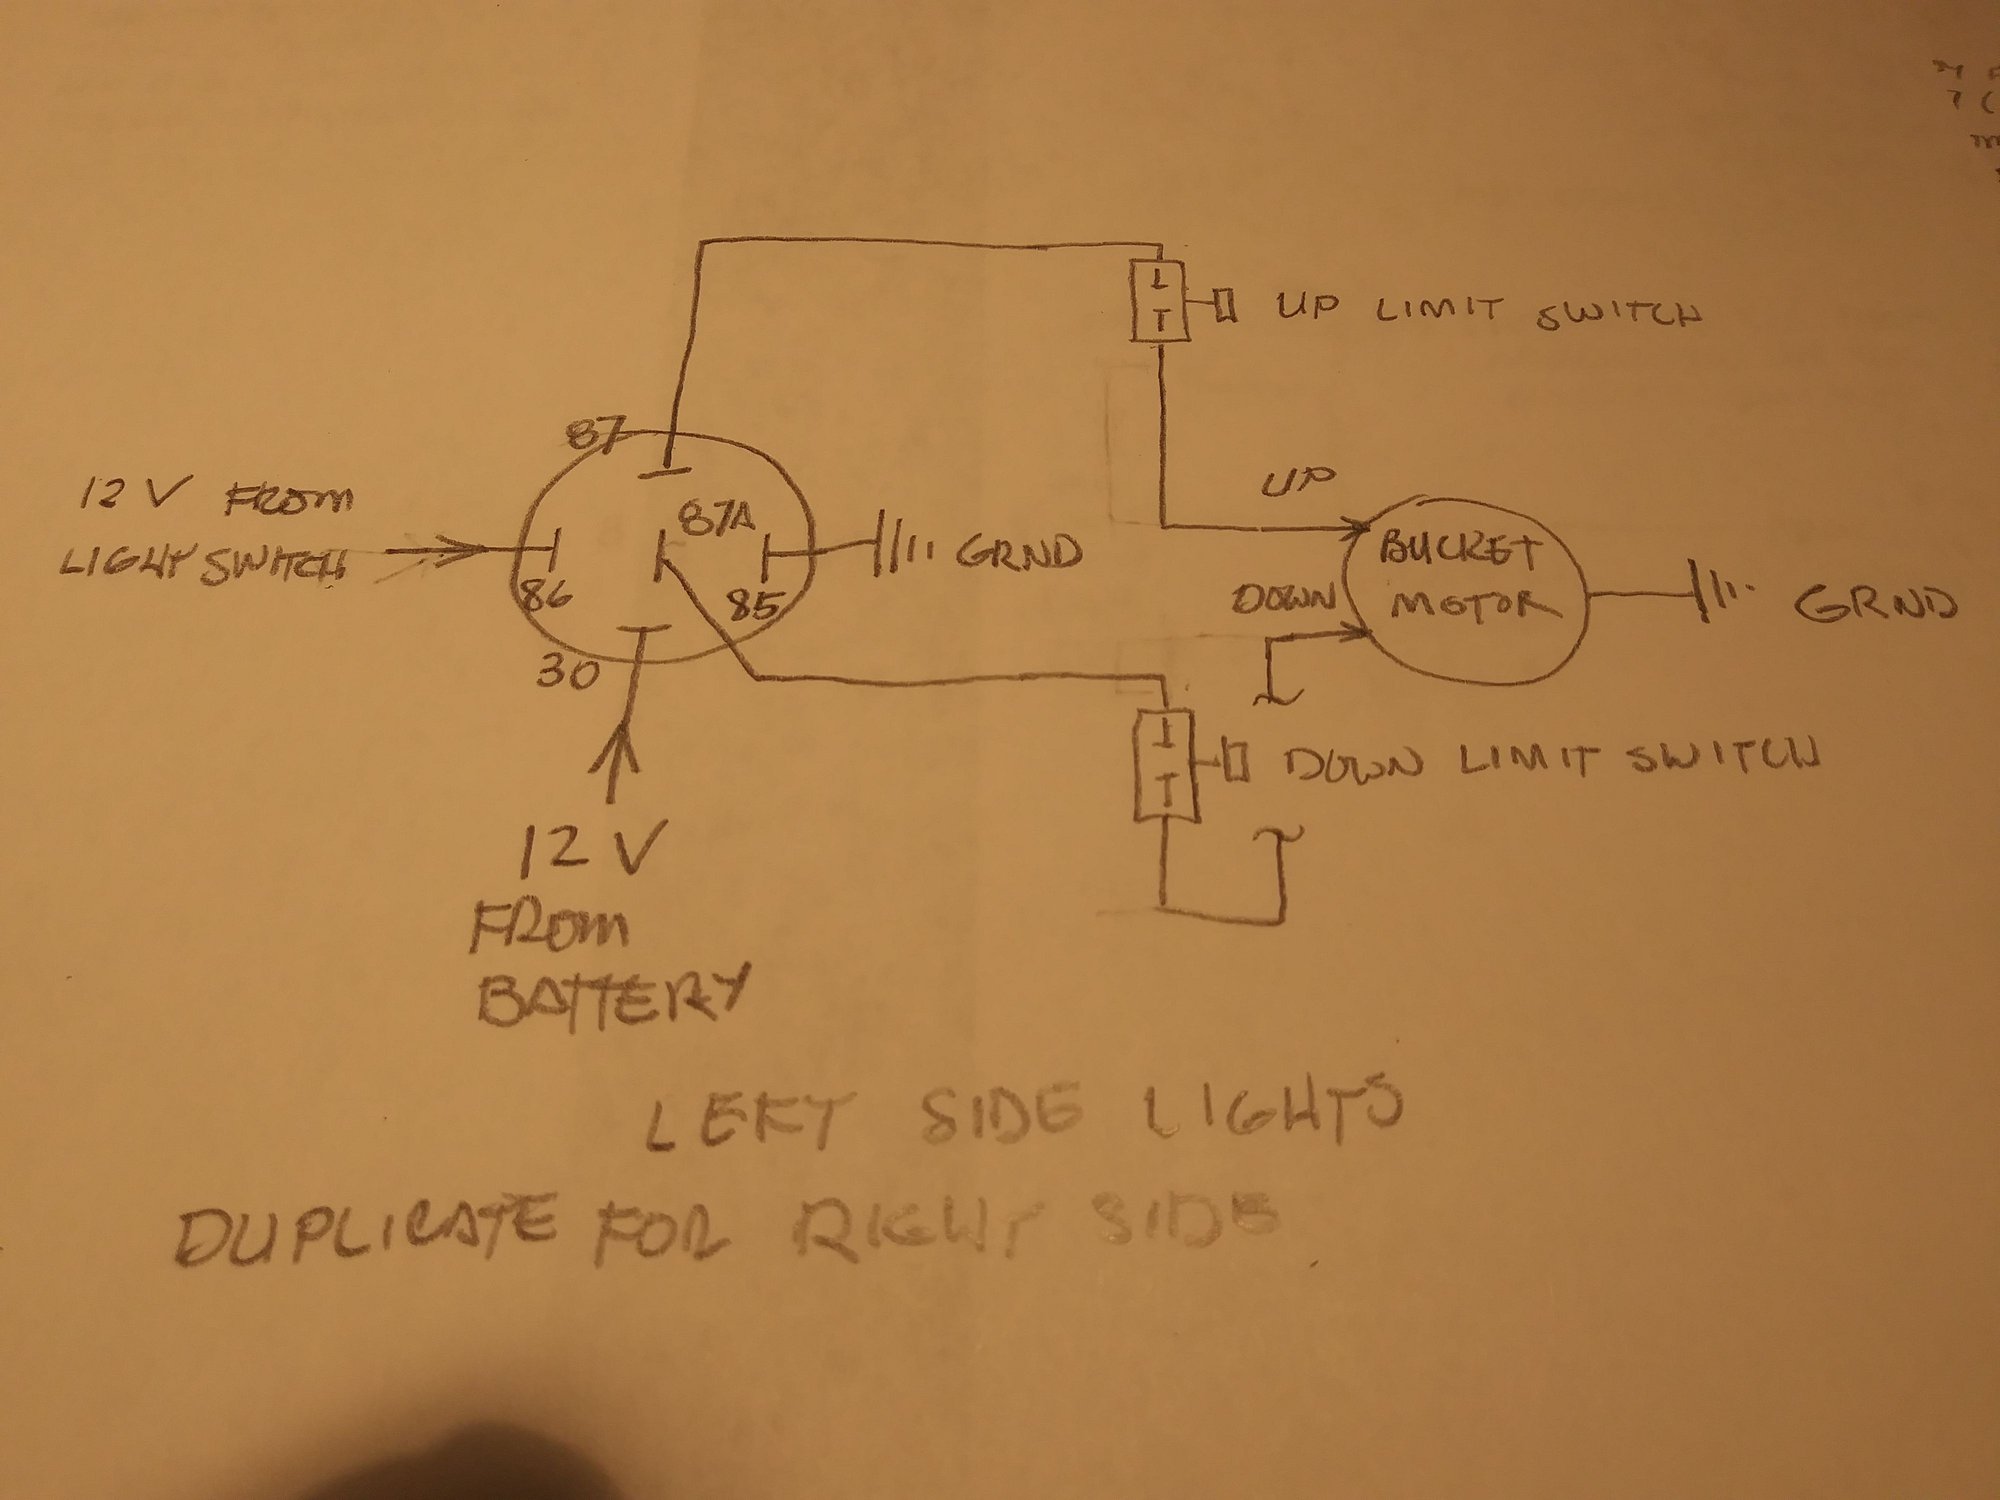 UP LIMIT SWITCH
87
12 V FROM
LIGHT SWITCH
UP
87A
GRND
BUCKET
MOTOR
86
85
DOWN
GRND
30
DOWN LIMIT SWITCH
12 V
FROM
BATTERY
LEFT SIDE LIGHTS
DUPLICATE FOR RIGHT SIDE